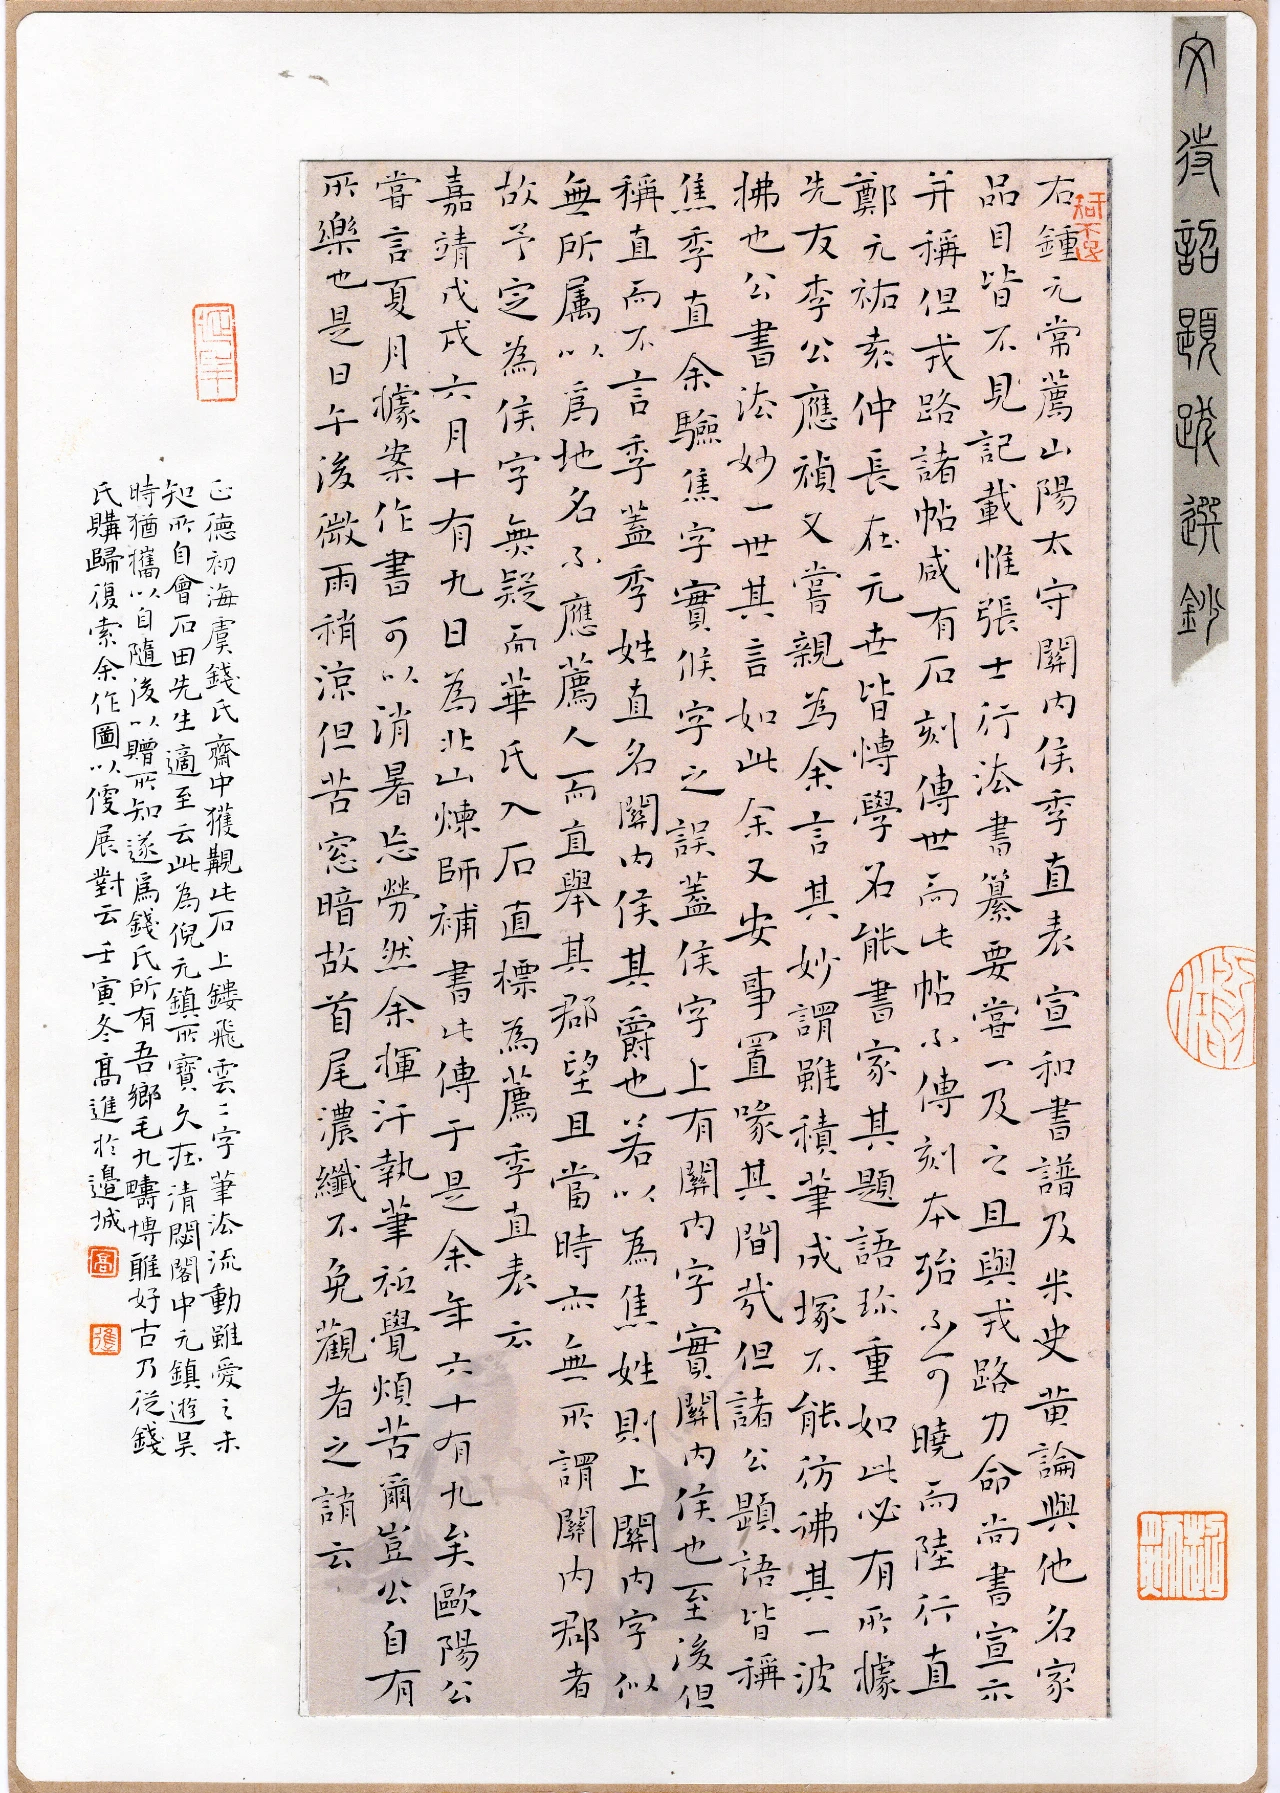 文待詔題跋選鈔
知不足
右鍾元常薦山陽太守關內侯季直表宣和書譜及米史黃論與他名家
品目皆不見記載惟張士行法書纂要嘗一及之且與戎路力命尚書宣示
并稱但戎路諸帖咸有石刻傳世而此帖不傳刻本殆不可曉而陸行直
鄭元祐袁仲長在元世皆博學名能書家其題語珍重如此必有所據
先友李公應禎又嘗親為余言其妙謂雖積筆成塚不能彷彿其一波
拂也公書法妙一世其言如此余又安事置喙其間哉但諸公題語皆稱
焦季直余驗焦字實候字之誤蓋侯字上有關內字實關內侯也至後但
稱直而不言季蓋季姓直名關內侯其爵也若以為焦姓則上關內字似
無所屬以為地名不應薦人而直舉其郡望且當時亦無所謂關內郡者
故予定為侯字無疑而華氏入石直標為薦季直表云
嘉靖戊戌六月十有九日為北山煉師補書此傳于是余年六十有九矣歐陽公
嘗言夏月據案作書可以消暑忘勞然余揮汗執筆祗覺煩苦爾豈公自有
所樂也是日午後微雨稍涼但苦窓暗故首尾濃纖不免觀者之誚云
正德初海虞錢氏齋中獲觀此石上鏤飛雲二字筆法流動雖愛之未
知所自會石田先生適至云此為倪元鎮所寶久在清閟閣中元鎮遊吳
時猶攜以自隨後以贈所知遂為錢氏所有吾鄉毛九疇博雅好古乃從錢
氏購歸復索余作圖以便展對云壬寅冬高進於邊城
延年
高
進